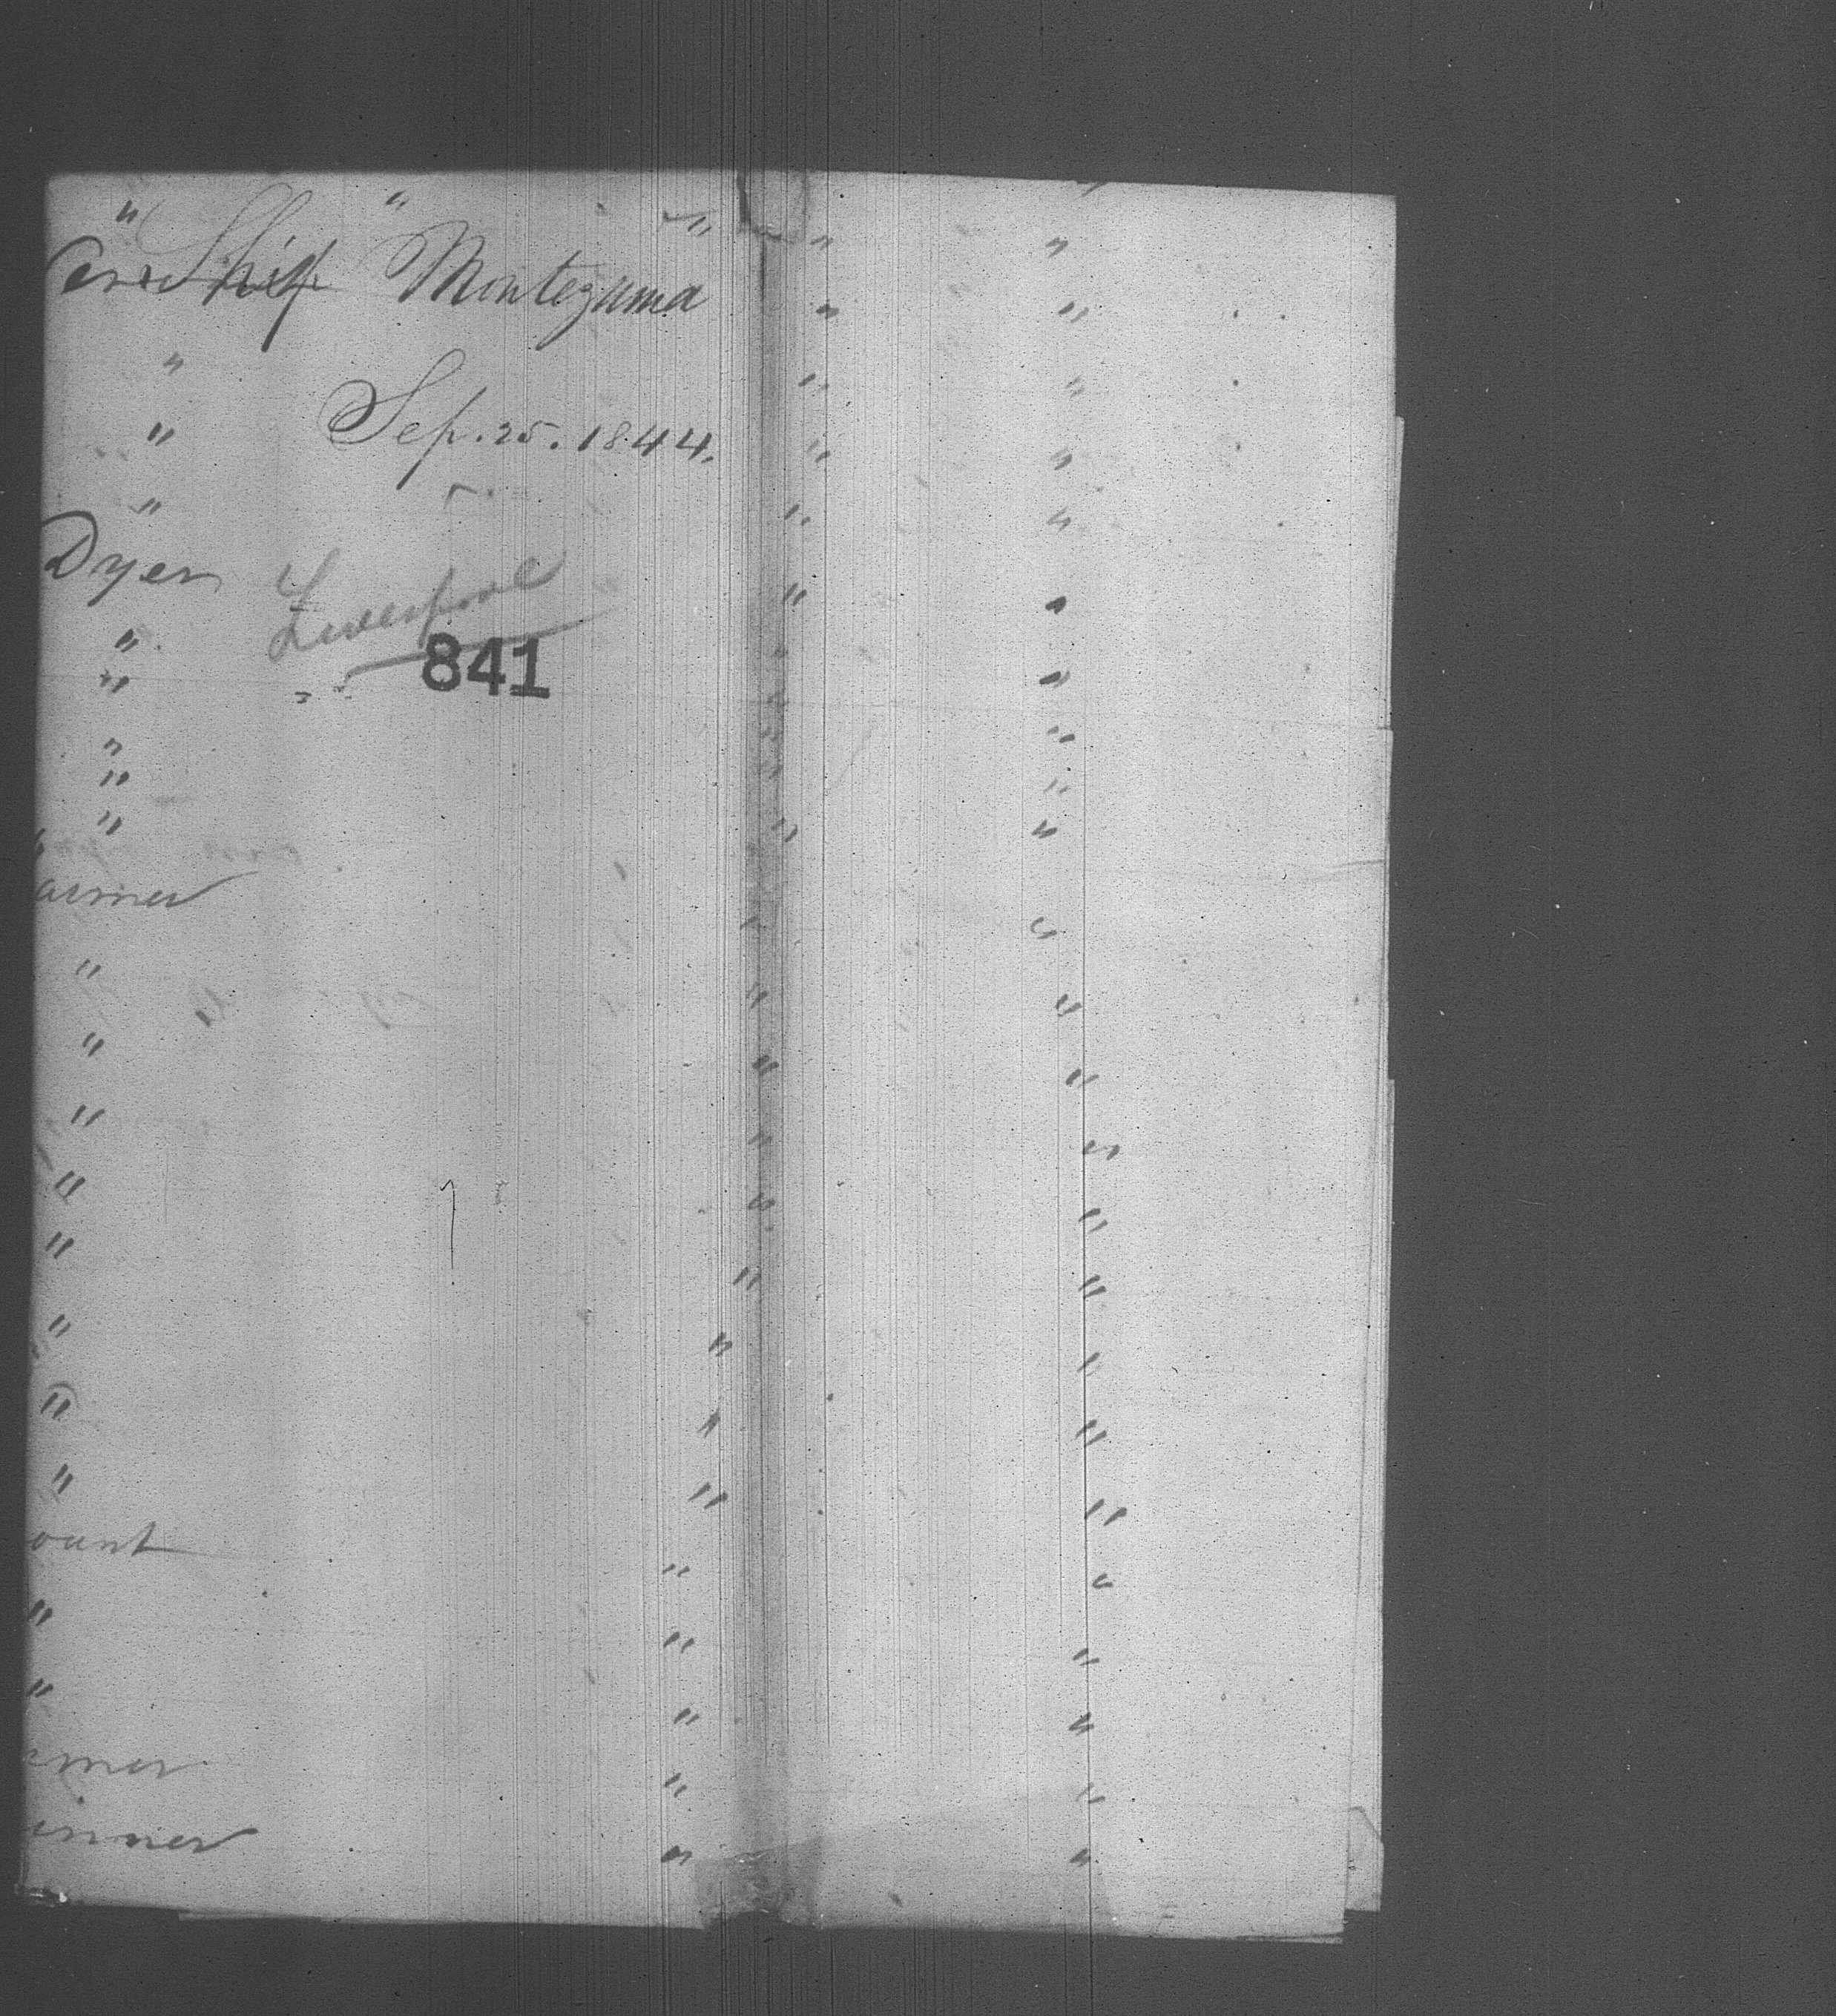 " " " " "
Ship Montezuma " "
" " "
Sep. 25. 1844.
" " "
" " "
Dyer
Liverpool
" " "
841
" " "
" " "
" " "
" " "
armer
" "
" " "
" " "
" " "
" " "
" " "
" " "
" " "
" " "
ount
" " "
" " "
" "
mer
" "
inner
" "